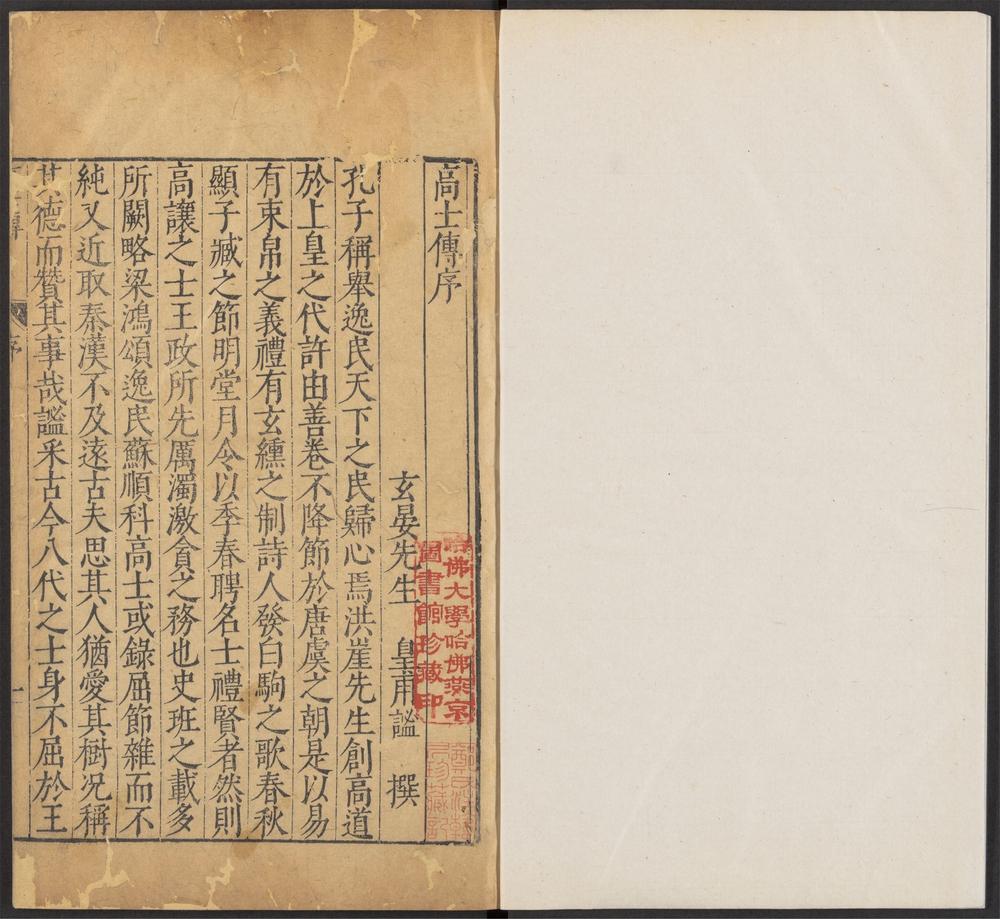 高士傳序
玄晏先生 皇甫謐 撰
孔子稱舉逸民天下之民歸心焉洪崖先生創高道
於上皇之代許由善卷不降節於唐虞之朝是以易
有束帛之義禮有玄纁之制詩人發白駒之歌春秋
顯子臧之節明堂月令以季春聘名士禮賢者然則
高讓之士王政所先厲濁激貪之務也史班之載多
所闕略梁鴻頌逸民蘇順科高士或錄屈節雜而不
純又近取秦漢不及遠古夫思其人猶愛其樹况稱
其德而贊其事哉謐采古今八代之士身不屈於王
序
一
哈佛大學哈佛燕京
圖書館珍藏印